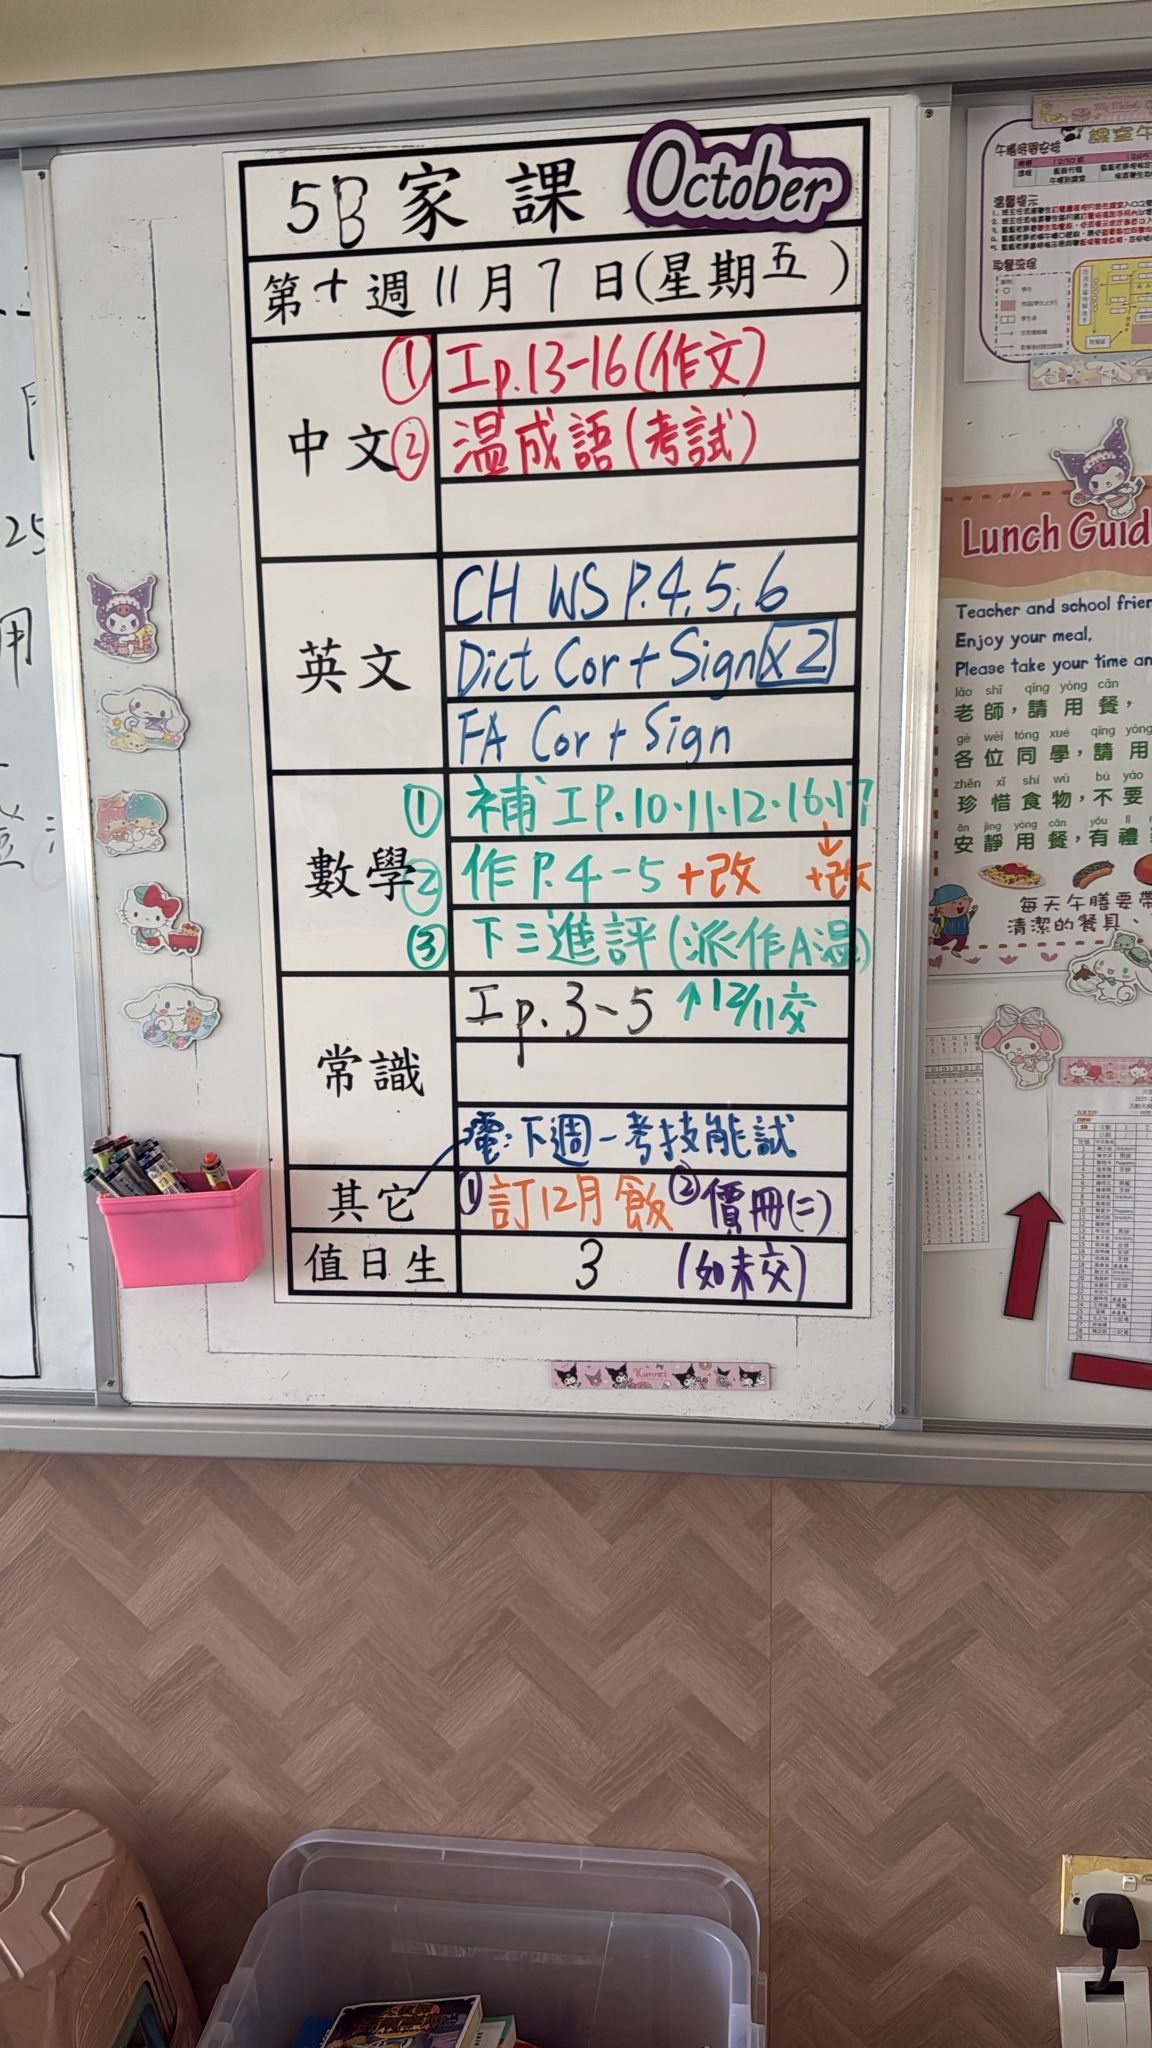 5B 家課
October
第十週11月7日(星期五)
中文
① 工p.13-16(作文)
② 温成語(考試)
英文
CH WS P.4,5,6
Dict Cor + Sign x2
FA Cor + Sign
數學
① 補工P.10·11·12·16·17
↓
+改
② 作P.4-5 +改
③ 下三進評(派作A温)
常識
工p.3-5 ↑12/11交
電:下週一考技能試
其它
①訂12月飯 ②價冊(二)
值日生
3 (如未交)
Lunch Guid
Teacher and school frien
Enjoy your meal,
Please take your time an
lǎo shī qǐng yòng cān
老師,請用餐,
gè wèi tóng xué qǐng yòng
各位同學,請用
zhēn xī shí wù bú yào
珍惜食物,不要
ān jìng yòng cān yǒu lǐ
安靜用餐,有禮
每天午膳要帶
清潔的餐具、
午膳時間安排
温馨提示
取餐流程
Kuromi
25
用